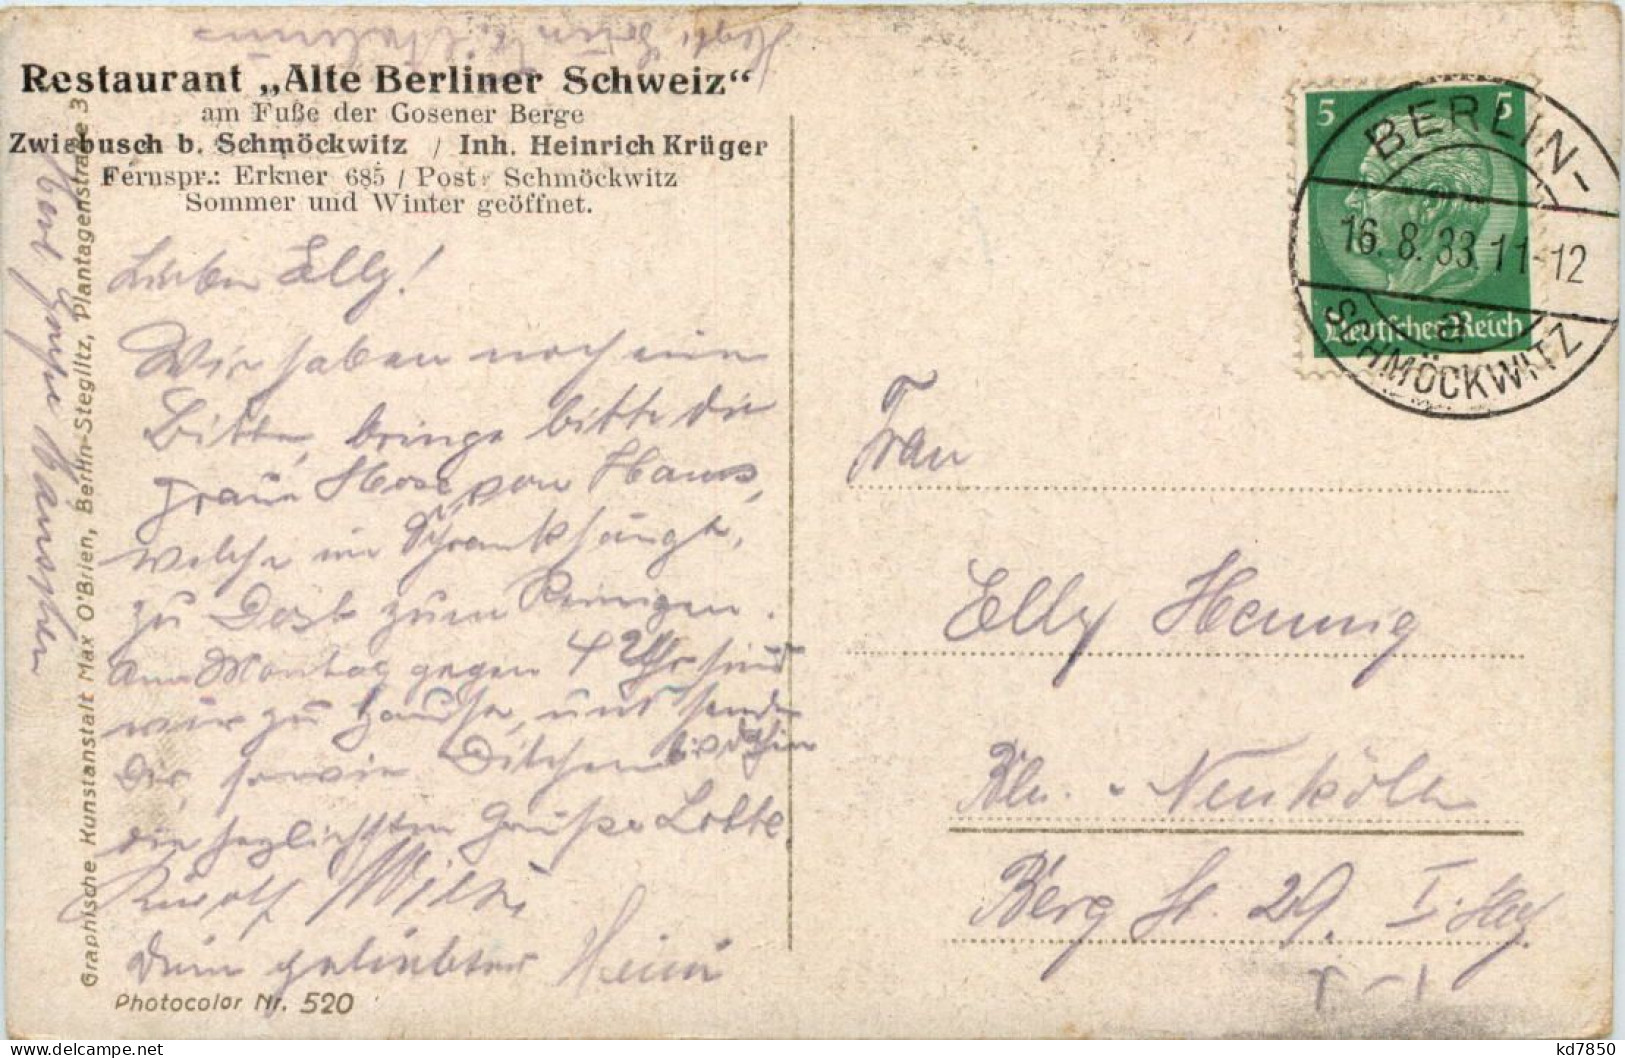 Restaurant „Alte Berliner Schweiz“
am Fuße der Gosener Berge
Zwiebusch b. Schmöckwitz / Inh. Heinrich Krüger
Fernspr.: Erkner 685 / Post: Schmöckwitz
Sommer und Winter geöffnet.
Lieben Elly!
Wir haben noch eine
Bitte, bringe bitte die
graue Hose von Hans,
welche im Schrank hängt,
zu Dost zum Reinigen.
Am Montag gegen 4 Uhr sind
wir zu Hause, und sende
Dir, sowie bis dahin
die herzlichsten Grüße Lotte,
Rudolf Willi
Dein geliebter Heini
Graphische Kunstanstalt Max O'Brien, Berlin-Steglitz, Plantagenstraße 3
Photocolor Nr. 520
5 5
Deutsches Reich
BERLIN-
16.8.33.11-12
a
SCHMÖCKWITZ
Frau
Elly Hennig
Bln. - Neukölln
Berg St. 29. I.
kd7850